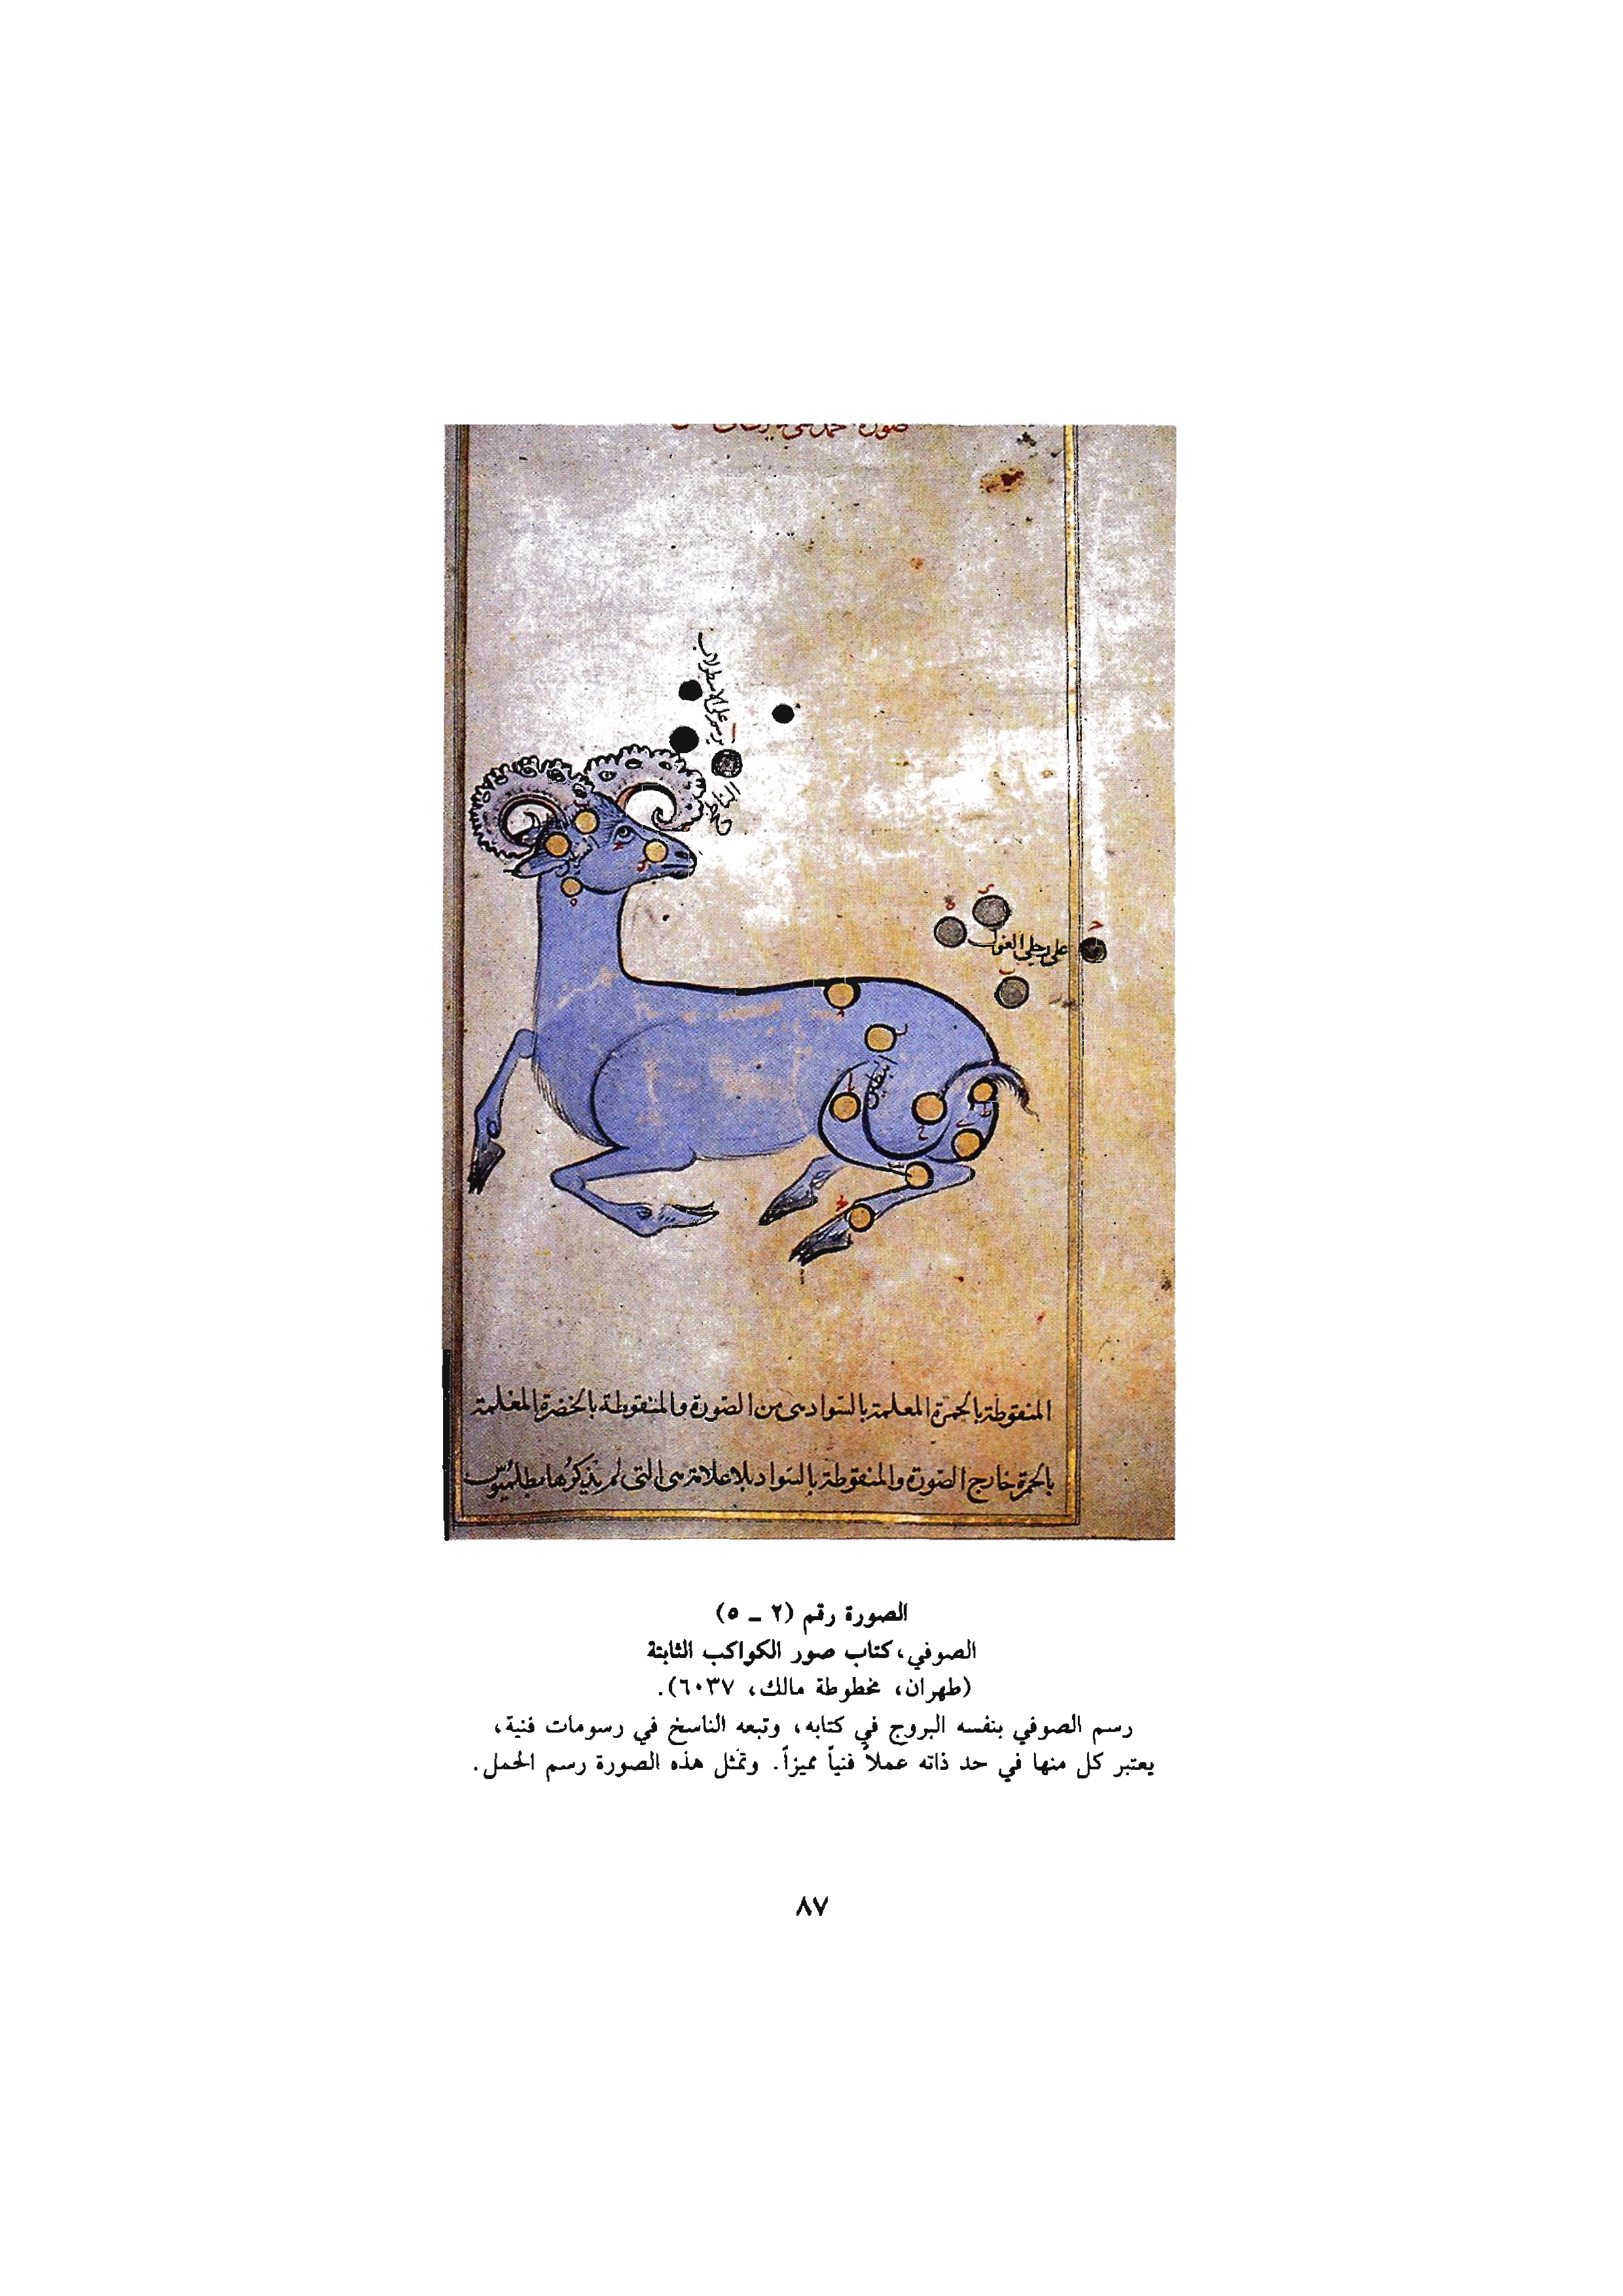 على الاسطرلاب
الناطح
على رجلي الغول
البطين
المنقوطة بالحمرة المعلمة بالسواد هي من الصورة والمنقوطة بالخضرة المعلمة
بالحمرة خارج الصورة والمنقوطة بالسواد بلا علامة هي التي لم يذكرها بطلميوس
الصورة رقم (٢ ـ ٥)
الصوفي، كتاب صور الكواكب الثابتة
(طهران، مخطوطة مالك، ٦٠٣٧).
رسم الصوفي بنفسه البروج في كتابه، وتبعه الناسخ في رسومات فنية،
يعتبر كل منها في حد ذاته عملاً فنياً مميزاً. وتمثل هذه الصورة رسم الحمل.
٨٧